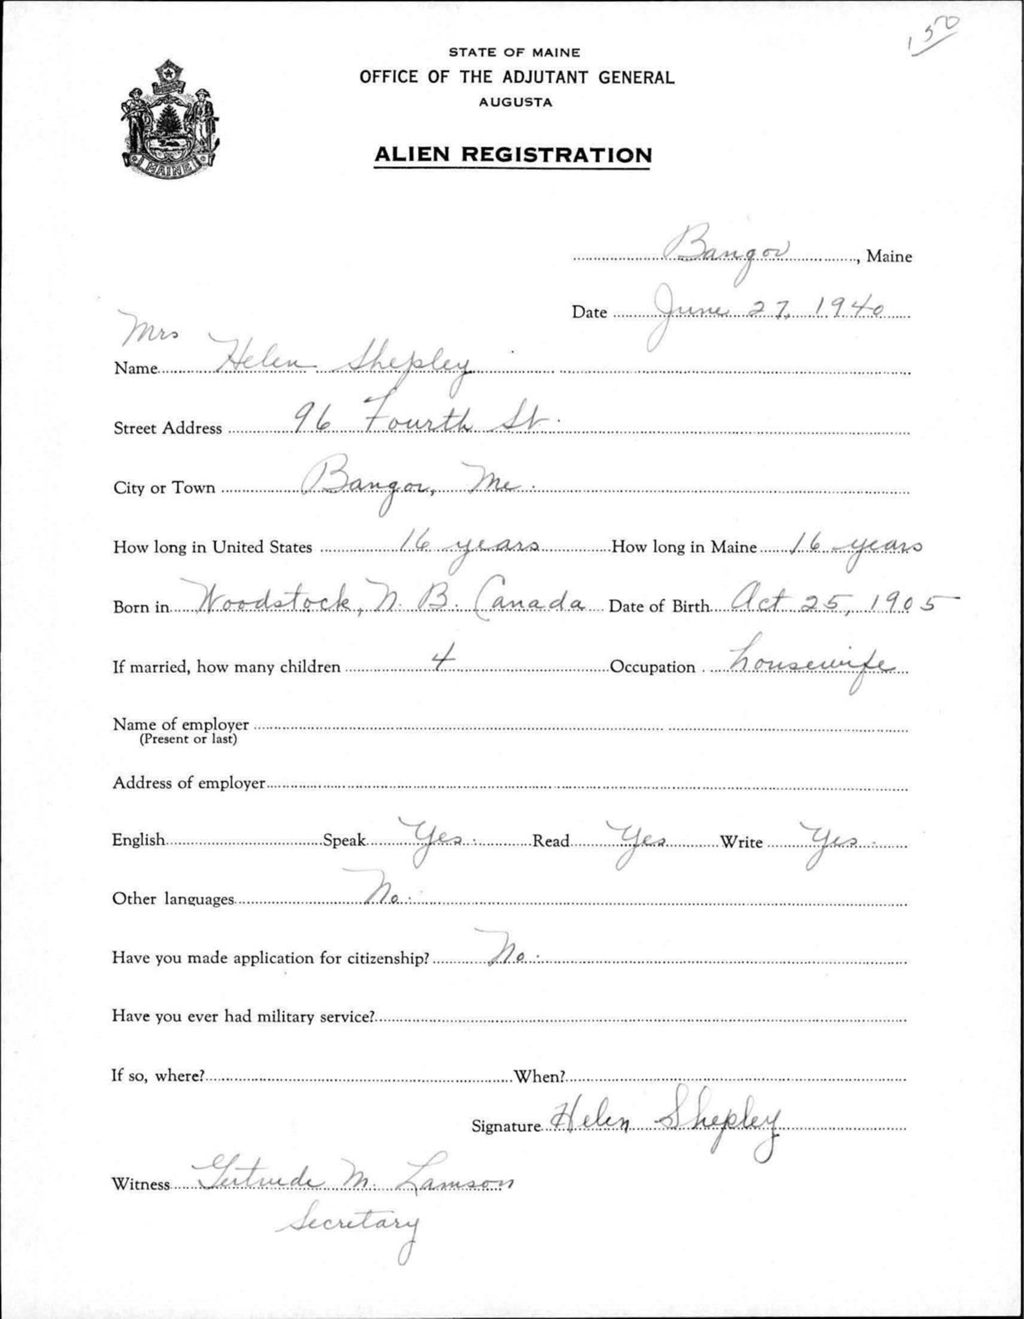 150
STATE OF MAINE
OFFICE OF THE ADJUTANT GENERAL
AUGUSTA
ALIEN REGISTRATION
MAINE
Bangor, Maine
Date June 27, 1940
Mrs
Name Helen Shepley
Street Address 96 Fourth St.
City or Town Bangor, Me.
How long in United States 16 years How long in Maine 16 years
Born in Woodstock, N. B. Canada Date of Birth Oct 25, 1905
If married, how many children 4 Occupation housewife
Name of employer
(Present or last)
Address of employer
English Speak Yes. Read Yes Write Yes.
Other languages No.
Have you made application for citizenship? No.
Have you ever had military service?
If so, where? When?
Signature Helen Shepley
Witness Gertrude M. Lamson
Secretary